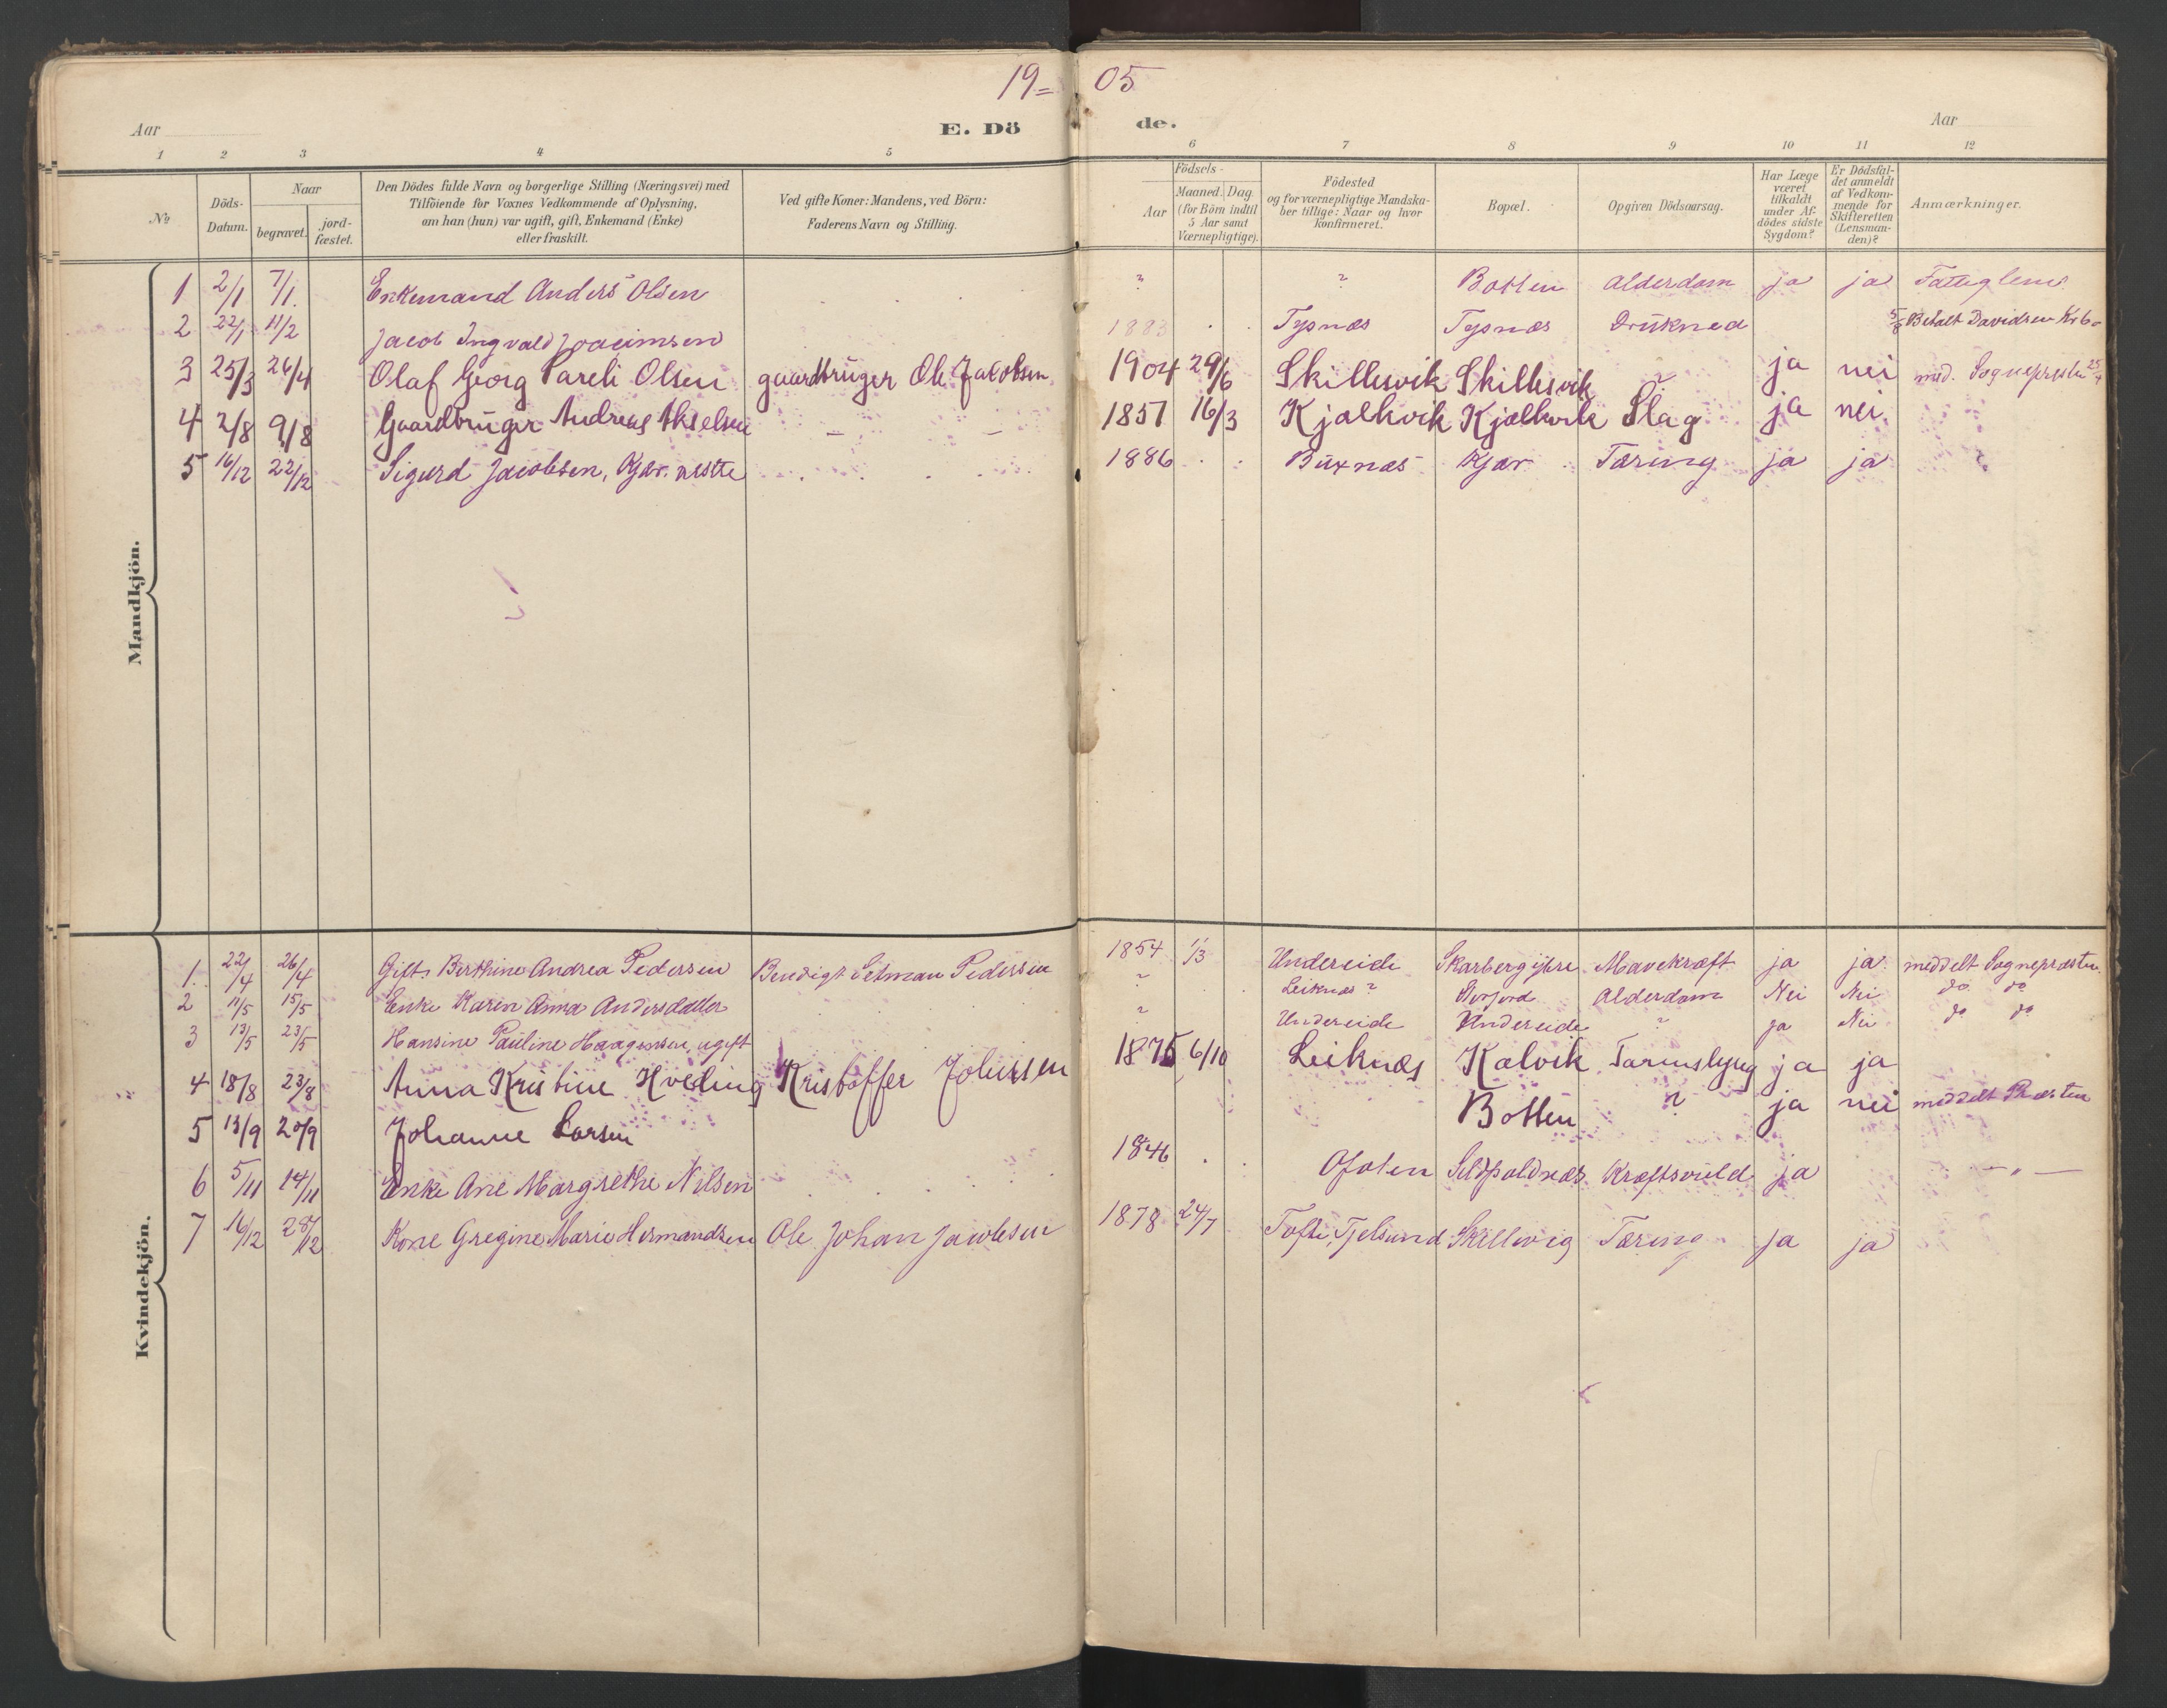 19= 05
Aar E. Dö de. Aar
1 2 3 4 5 6 7 8 9 10 11 12
No
Döds-Datum.
Naar
begravet.
jord-fæstet.
Den Dödes fulde Navn og borgerlige Stilling (Næringsvei) med
Tilföiende for Voxnes Vedkommende af Oplysning,
om han (hun) var ugift, gift, Enkemand (Enke)
eller fraskilt.
Ved gifte Koner: Mandens, ved Börn:
Faderens Navn og Stilling.
Födsels-
Aar
Maaned. Dag.
(for Börn indtil
5 Aar samt
Værnepligtige).
Födested
og for værnepligtige Mandska-
ber tillige: Naar og hvor
konfirmeret.
Bopæl.
Opgiven Dödsaarsag.
Har Læge
været
tilkaldt
under Af-
dödes sidste
Sygdom?
Er Dödsfal-
det anmeldt
af Vedkom-
mende for
Skifteretten
(Lensman-
den)?
Anmærkninger.
Mandkjön.
1 2/1 7/1. Enkemand Anders Olsen ? ? Botten Alderdom ja ja Fattiglem
2 22/1 11/2 Jacob Ingvald Joacimsen 1883 Tysnæs Tysnæs Drukned Betalt Davidsen
3 25/3 26/4 Olaf Georg Pareli Olsen gaardbruger Ole Jakobsen 1904 29/6 Skillesvik Skillesvik ? ja nei med. Sognepresten 25/4
4 2/8 9/8 Gaardbruger Andreas Akselsen 1851 16/3 Kjælkvik Kjælkvik Slag ja nei
5 16/12 22/12 Sigurd Jacobsen, Kjær. 1886 Buxnæs Kjær Tæring ja ja
Kvindekjön.
1. 22/4 26/4 Gift. Berthine Andrea Pedersen Bendigt Setman Pedersen 1854 1/3 Undereide Skarberg Mavekræft ja ja meddelt Sognepræsten.
2 11/5 15/5 Enke Karen Anna Andersdatter ? Leiknæs? Storjord Alderdom Nei Nei do do
3 13/5 23/5 Hansine Pauline Haagensen, ugift ? Undereide Undereide ? ja Nei do do
4 18/8 23/8 Anna Kristine Kveding Kristoffer Johnsen 1875 6/10 Leiknæs Kalvik ja ja
5 13/9 20/9 Johanne Larsen Botten ? ja nei meddelt Præsten
6 5/11 14/11 Enke Ane Margrethe Nilsen 1846 Ofoten Kræftsvuld ja — " —
7 16/12 28/12 Kone Gregine Marie Hermandsen Ole Johan Jacobsen 1878 24/7 Tofte, Tjelsund Skillevig Tæring ja ja